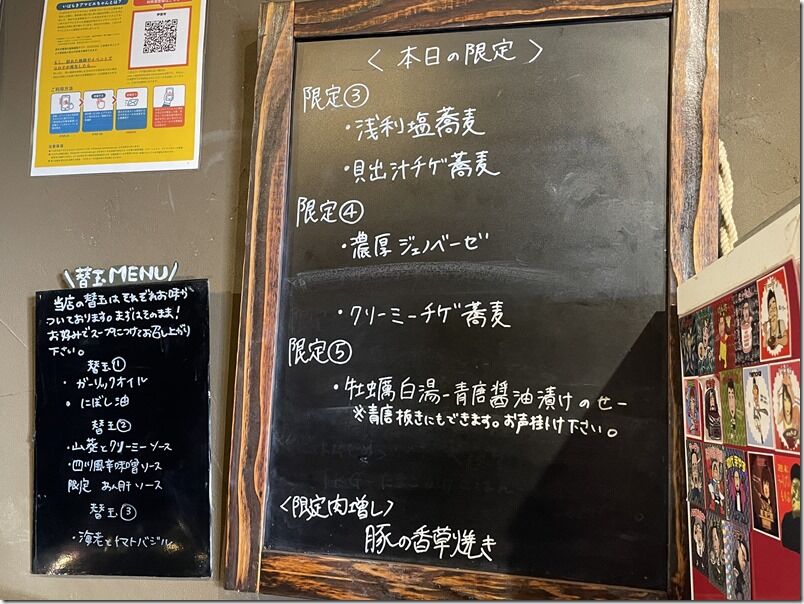 いばらきアマビエちゃんとは?
ご利用方法
〈 本日の限定 〉
限定③
・浅利塩蕎麦
・貝出汁チゲ蕎麦
限定④
・濃厚ジェノベーゼ
・クリーミーチゲ蕎麦
限定⑤
・牡蠣白湯-青唐醤油漬けのせ-
※青唐抜きにもできます。お声掛け下さい。
〈限定肉増し〉
豚の香草焼き
\替玉MENU/
当店の替玉はそれぞれお味が
ついております。まずはそのまま!
お好みでスープにつけてお召し上がり
下さい。
替玉①
・ガーリックオイル
・にぼし油
替玉②
・山葵とクリーミーソース
・四川風辛味噌ソース
限定 あん肝ソース
替玉③
・海老とトマトバジル